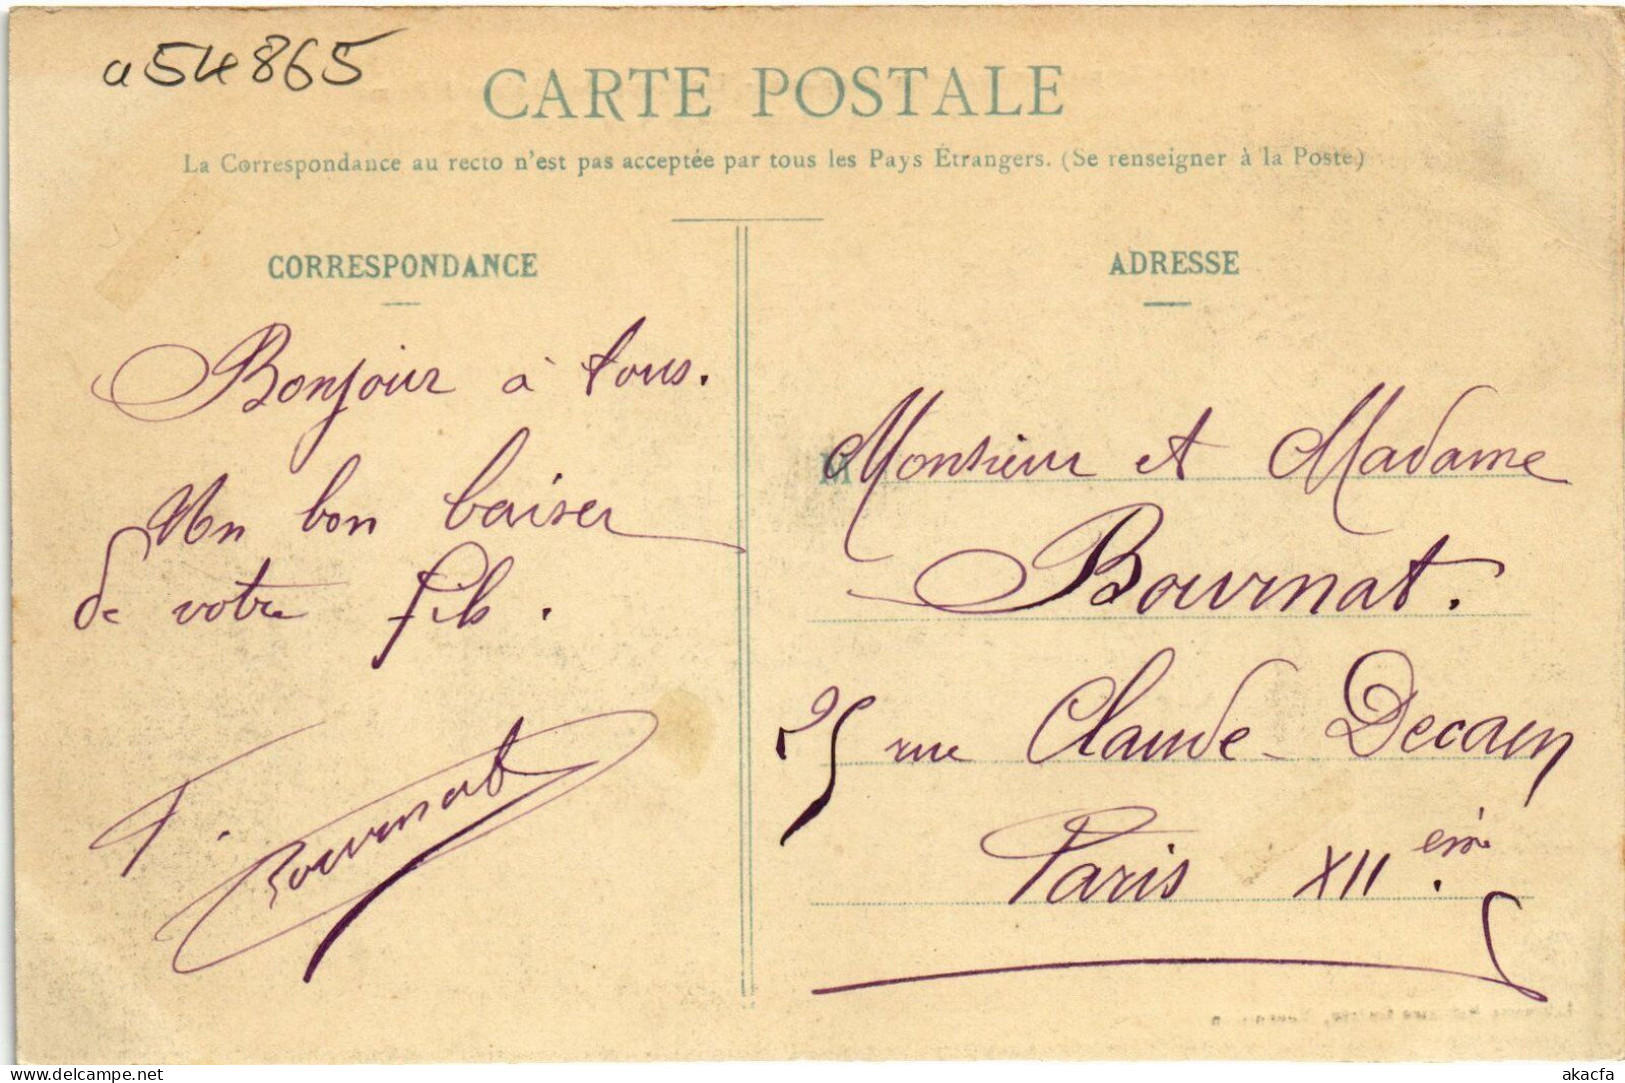 a54865
CARTE POSTALE
La Correspondance au recto n'est pas acceptée par tous les Pays Étrangers. (Se renseigner à la Poste)
CORRESPONDANCE
Bonjour à tous.
Un bon baiser
de votre fils.
F. Bournat
ADRESSE
M
Monsieur et Madame
Bournat.
25 rue Claude-Decaen
Paris XII ème.
delcampe.net
akacfa